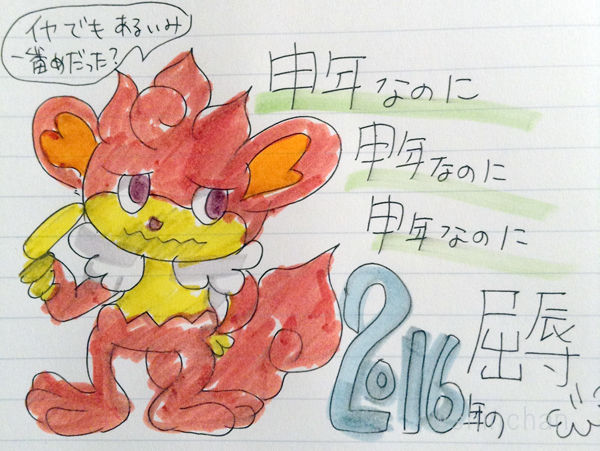 イヤでも あるいみ
一番めだった?
申年なのに
申年なのに
申年なのに
2016年の
屈辱